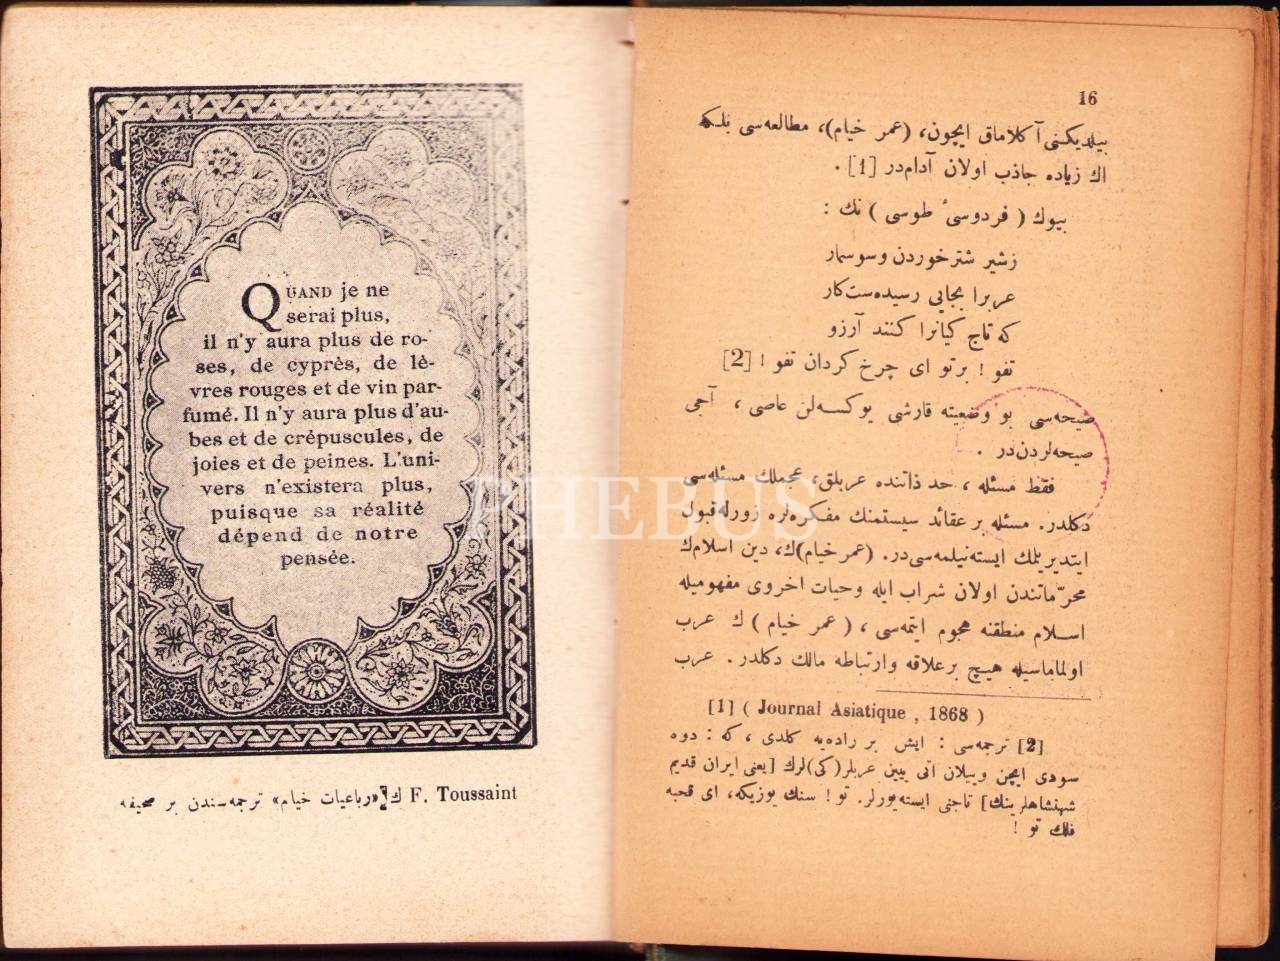 QUAND je ne
serai plus,
il n'y aura plus de ro-
ses, de cyprès, de lè-
vres rouges et de vin par-
fumé. Il n'y aura plus d'au-
bes et de crépuscules, de
joies et de peines. L'uni-
vers n'existera plus,
puisque sa réalité
dépend de notre
pensée.
F. Toussaint ك «رباعیات خیام» ترجمه‌سندن بر صحیفه
16
بیلدیکنی آكلاماق ایچون، (عمر خیام)، مطالعه‌سی بلكه
اك زیاده جاذب اولان آدام‌در [1] .
بیوك ( فردوسیٔ طوسی ) نك :
زشیر شتر خوردن و سوسمار
عربرا بجایی رسیده‌ست کار
که تاج کیانرا کنند آرزو
تفو ! برتو ای چرخ کردان تفو ! [2]
صیحه‌سی بو وضعیته قارشی یوکسه‌لن عاصی ، آجی
صیحه‌لردن‌در .
فقط مسئله ، حد ذاتنده عربلق، عجملك مسئله‌سی
دكلدر. مسئله بر عقائد سیستمنك مفکره‌لره زورله قبول
ایتدیریلمك ایسته‌نیلمه‌سی‌در. (عمر خیام)ك، دین اسلام‌ك
محرّماتندن اولان شراب ایله وحیات اخروی مفهومیله
اسلام منطقنه هجوم ایتمه‌سی ، ( عمر خیام ) ك عرب
اولماماسیله هیچ بر علاقه وارتباطه مالك دكلدر . عرب
[1] ( Journal Asiatique , 1868 )
[2] ترجمه‌سی : ایش بر راده‌یه كلدی ، كه : دوه
سودی ایچن وییلان اتی ییین عربلر(كی)لرك [یعنی ایران قدیم
شهنشاهلرینك] تاجنی ایسته‌یورلر. تو ! سنك یوزیكه، ای قحبه
فلك تو !
PHEBUS